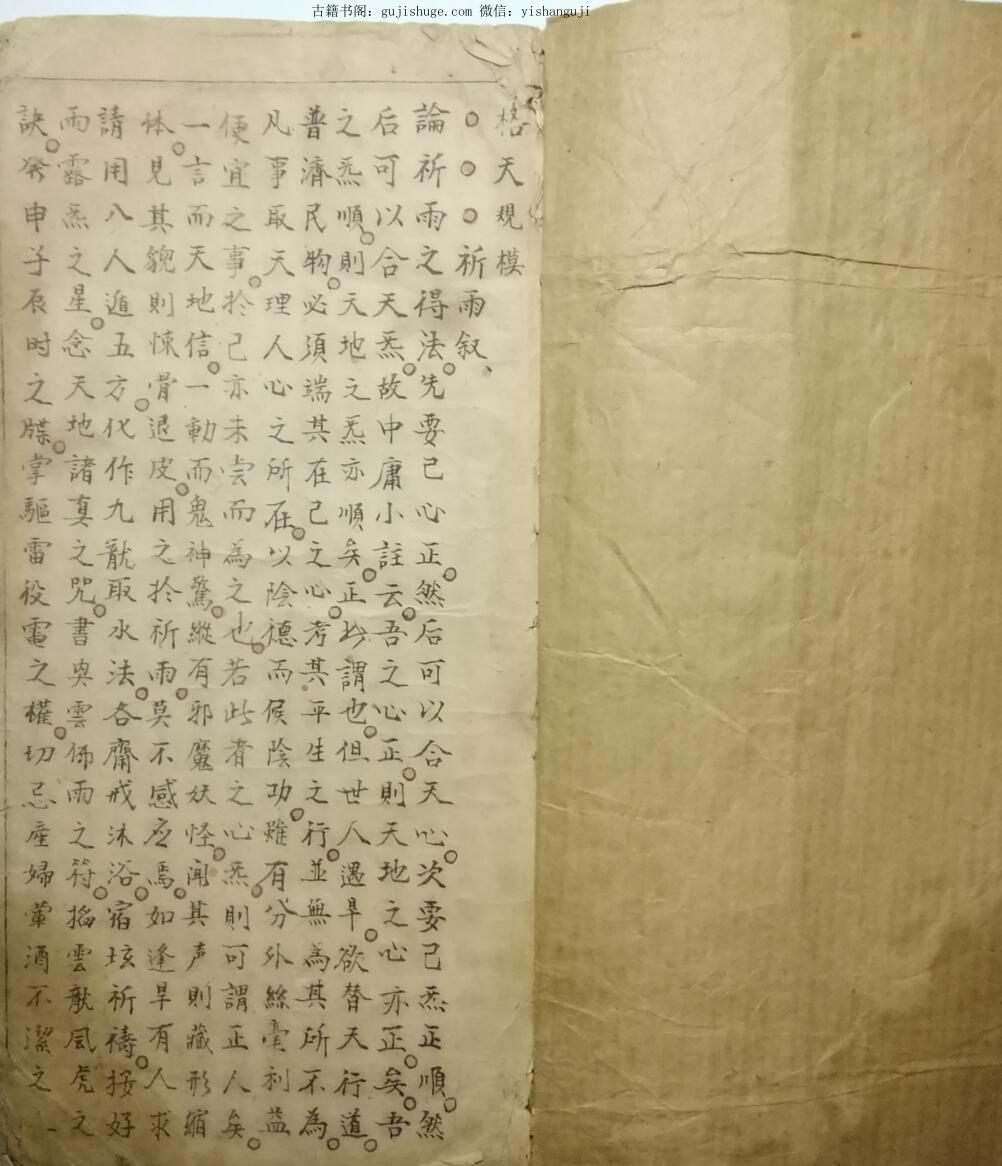 古籍书阁：gujishuge.com 微信：yishanguji
格天規模
○○○祈雨叙、
論祈雨之得法。先要己心正。然后可以合天心。次要己炁正順。然
后可以合天炁。故中庸小註云。吾之心正。則天地之心亦正矣。吾
之炁順。則天地之炁亦順矣。正此謂也。但世人遇旱。欲替天行道。
普濟民物。必須端其在己之心。考其平生之行。並無為其所不為。
凡事取天理人心之所在。以陰德而候陰功。雖有分外絲毫利益
便宜之事。於己亦未尝而為之也。若此者之心炁。則可謂正人矣。
一言而天地信。一動而鬼神驚。縱有邪魔妖怪。闻其声則藏形縮
体。見其貌則悚骨退皮。用之於祈雨。莫不感应焉。如逢旱有人求
請用八人遁五方。化作九龍取水法。各齋戒沐浴。宿垓祈禱。按好
雨露炁之星。念天地諸真之咒。書兴雲佈雨之符。搯雲龍風虎之
訣。癸申子辰时之牒。掌驅雷役電之權。切忌產婦葷酒不潔之